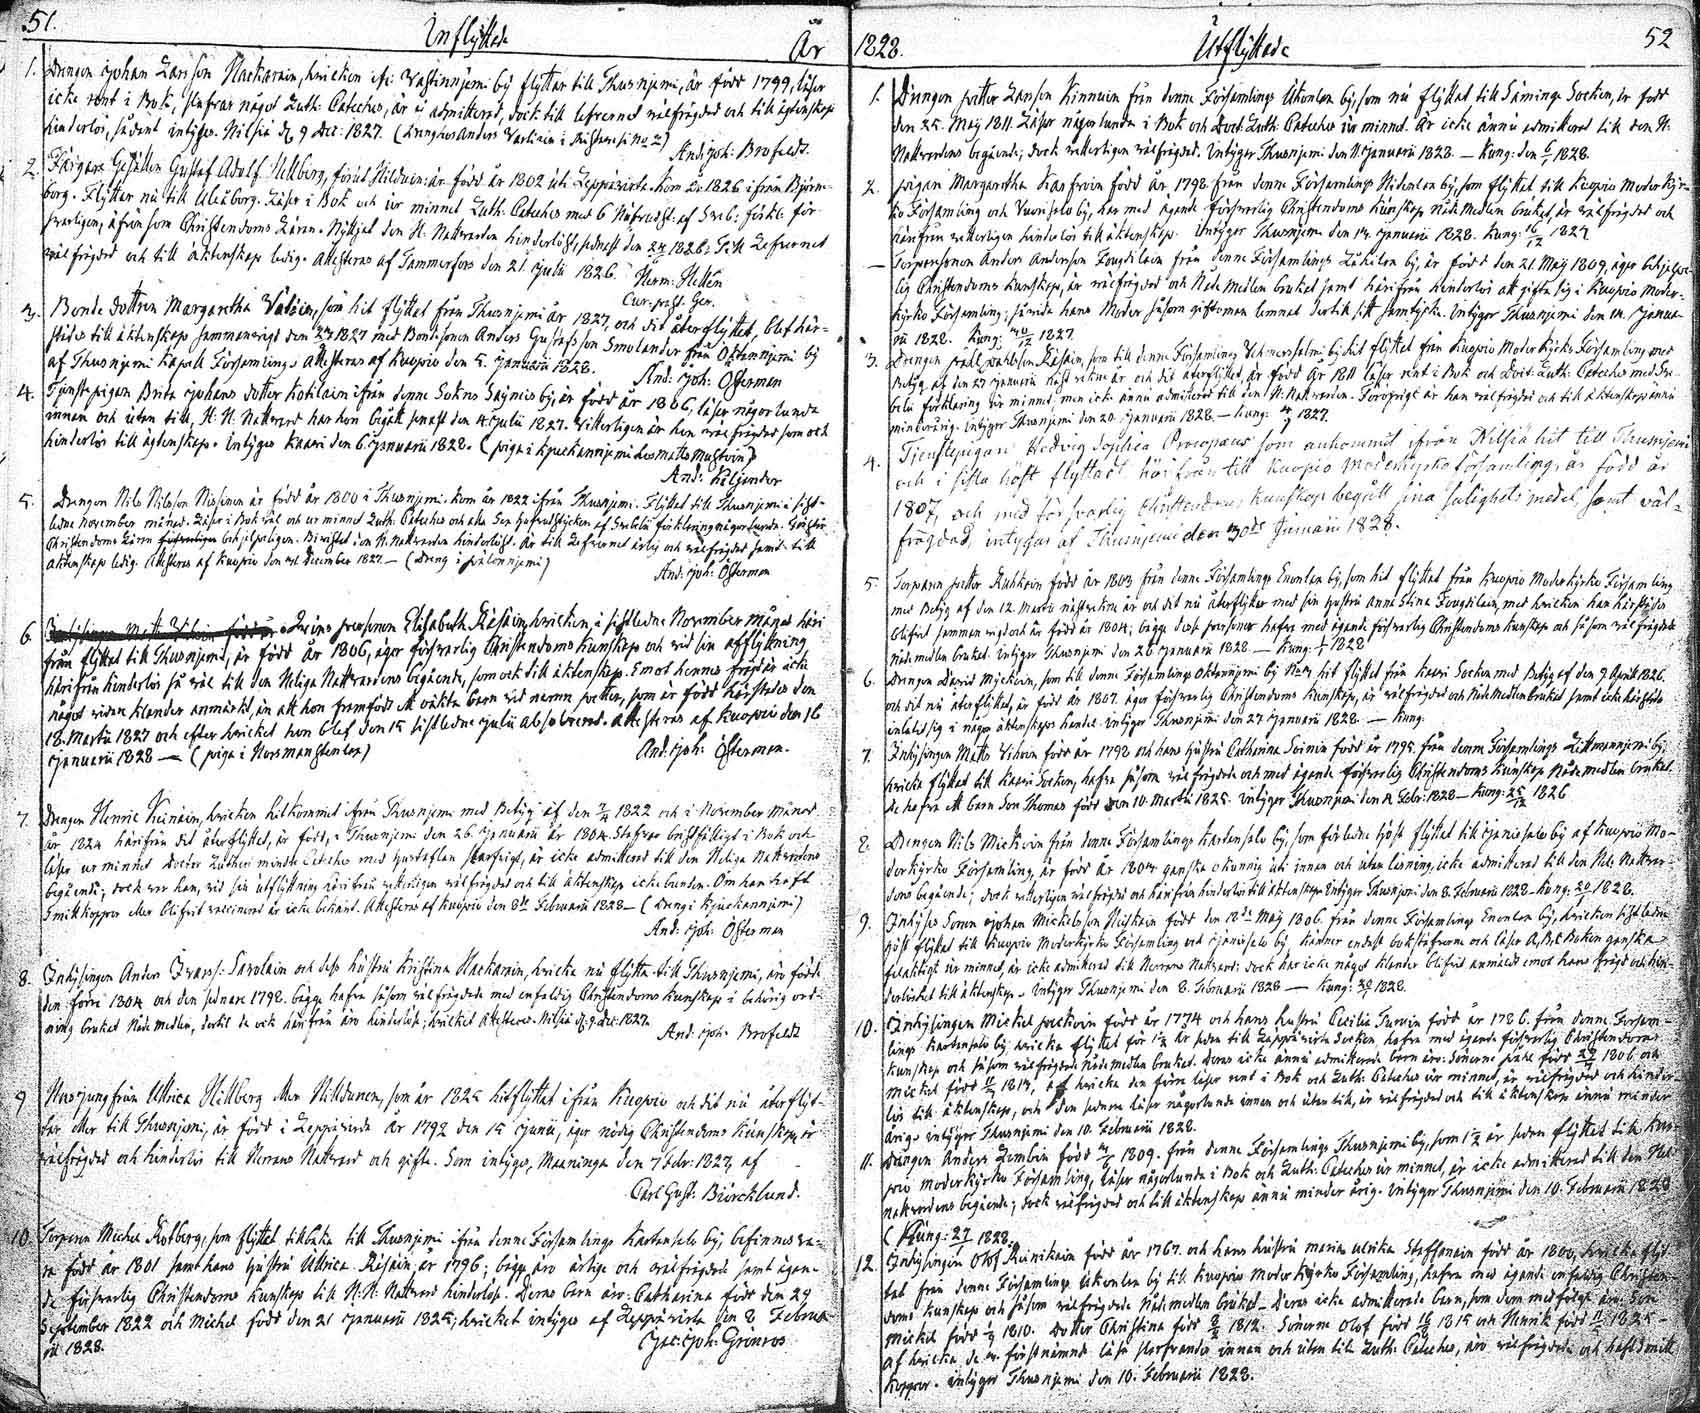 51.
Inflyttade
År
1. Drengen Johan Larsson Hackarain, hvilken ifr: Vastinniemi by flyttar till Thusnjemi, är född 1799, läser
icke rent i Bok, stafvar något Luth: Cateches, är ej admitterad, dock till lefvernet välfrägdad och till ägtenskap
hinderlös, sådant intygas. Nilsiä d. 9 Dec: 1827. (Dräng hos Anders Vartiain i Riistavesi No 2)
And: Joh: Brofeldt.
2. Färgare Gesällen Gustaf Adolf Hillberg, förut Hilduin: är född år 1802 uti Leppävirta. Kom år 1826 ifrån Björne-
borg. Flyttar nu till Uleåborg. Läser i Bok och ur minnet Luth: Cateches med 6 Hufvudst: af Sveb: förkl: för-
svarligen, äfven som Christendoms Läran. Nyttjat den H. Nattvarden hinderlöst, sednast den 1826. Till Lefvernet
välfrägdad och till äktenskap ledig. Attesteras af Tammerfors den 21. Julii 1826.
Herm: Hellén
Cur: past. Ger.
3. Bonde dottren Margaretha Väläin, som hit flyttat från Thusnjemi år 1827, och dit återflyttat, blef här-
städes till äktenskap sammanvigd den 1827 med Bondesonen Anders Gustafsson Smolander från Oktennjemi by
af Thusnjemi Kapell Församling. Attesteras af Kuopio den 5. Januarii 1828.
And: Joh: Österman
4. Tjenstepigan Brita Johans dotter Kokilain ifrån denne Sokns Säymis by, är född år 1806, läser någorlunda
innan och utan till, H: H: Nattvard har hon begått senast den 4. Julii 1827. Vitterligen är hon välfrägdad som ock
hinderlös till ägtenskap. Intygas Kaavi den 6. Januarii 1828. (piga i Kjuckannjemi hos Matts Mustoin)
And: Kiljander
5. Drengen Nils Nilsson Nissinen är född år 1800 i Thusnjemi. Kom år 1822 ifrån Thusnjemi. Flyttat till Thusnjemi i sist-
ledne November månad. Läser i Bok väl och ur minnet Luth: Cateches och alla Sex Hufvudstycken af Svebelii förklaring någorlunda. Förstår
Christendoms Läran och jelpeligen. Bivistat den H. Nattvarden hinderlöst. Är till Lefvernet ärlig och välfrägdad samt till
äktenskap ledig. Attesteras af Kuopio den 31 December 1827. — (Dreng i Jälannjemi)
And: Joh: Österman
6. Qvins personen Elisabeth Räsäin, hvilken, i sistledne November månad häri
från flyttat till Thusnjemi, är född år 1806, äger försvarlig Christendoms Kunskap och vid sin afflyttning
härifrån hinderlös så väl till den Heliga Nattvardens begående, som ock till äktenskap. Emot hennes frägd är icke
något vidare klander anmärkt, än att hon framfödt et oäkta barn vid namn petter, som är född härstädes den
18. Martii 1827 och efter hvilket hon blef den 15 sistledne Julii absolverad. Attesteras af Kuopio den 16
Januarii 1828 — (piga i Norsmanstenlax)
And: Joh: Österman.
7. Drengen Henric Keinäin, hvilken hitkommit ifrån Thusnjemi med Betyg af den 1822 och i November månad
år 1824 härifrån dit återflyttat, är född i Thusnjemi den 26. Januarii år 1804. Stafvar bristfälligt i Bok och
läser ur minnet Doctor Lutheri mindre Cateches med Hustaflan skarfvigt, är icke admitterad till den Heliga Nattvardens
begående; dock var han, vid sin utflyttning härifrån vitterligen välfrägdad och till äktenskap icke bunden. Om han haft
Smittkoppor eller blifvit vaccinerad är icke bekant. Attesteras af Kuopio den 8de Februarii 1828 — (Dreng i Kjuckannjemi)
And: Joh: Österman
8. Inhysingen Anders Iwars: Savolain och dess hustru Kristina Hackarain, hvilka nu flytta till Thusnjemi, äro födde,
den förre 1804 och den sednare 1798. begge hafva såsom välfrägdade med enfaldig Christendoms kunskap i behörig ord-
ning brukat Nådemedlen, dertil de ock härifrån äro hinderlösa; hvilket attesteras. Nilsiä d. 9 dec: 1827.
And: Joh: Brofeldt
9 Husjungfrun Ulrica Hillberg eller Hilldunen, som år 1825 hitflyttat ifrån Kuopio och dit nu återflyt-
tar eller till Thusnjemi, är född i Leppävirta år 1792 den 15 Junii, äger nödig Christendoms Kunskap, är
välfrägdad och hinderlös till Herrans Nattvard och gifte. Som intygas, Maaninga den 7 Febr: 1827, af
Carl Gust: Biörcklund.
10. Torparen Michel Rotberg, som flyttat tilbaka till Thusnjemi ifrån denne Församlings Kartansalo by, befinnes va-
ra född år 1801 samt hans Hustru Ulrica Räsäin, år 1796; begge äro ärlige och välfrägdade samt ägan-
de försvarlig Christendoms kunskap till H. H. Nattvard hinderlöse. Deras barn äro: Catharina född den 29
September 1822 och Michel född den 21 Januarii 1825; hvilket intygas af Leppävirta den 8 Februa-
rii 1828.
Jac: Joh: Grönroos
1828.
Utflyttade
52
1. Drengen petter Larsson Kinnuin från denne Församlings Ukonlax by, som nu flyttat till Säminge Socken, är född
den 25. Maj 1811. Läser någorlunda i Bok och Doct: Luth: Cateches ur minnet. Är icke ännu admitterad till den H:
Nattvardens begående; dock vitterligen välfrägdad. Intygar Thusnjemi den 11. Januarii 1828. — Kung: den 6/1 1828.
2. pigan Margaretha Karfvoin född år 1798 från denne Församlings Hidenlax by, som flyttat till Kuopio Moder Kyr-
ko Församling och Vuorisalo by, har med ägande försvarlig Christendoms Kunskap nådemedlen brukat, är välfrägdad och
härifrån vitterligen hinderlös till äktenskap. Intygar Thusnjemi den 14. Januarii 1828. Kung: 16/12 1827
— Torparesonen Anders Andersson Fougdilain från denne Församlings Lukilax by, är född den 21. Maj 1809, äger behjelpe-
lig Christendoms kunskap, är välfrägdad och Nåde Medlen brukat samt härifrån hinderlös att gifta sig i Kuopio Moder-
kyrko Församling; såvida hans Moder såsom giftoman lemnat dertill sitt samtycke. Intygar Thusnjemi den 14. Janua-
rii 1828. Kung: 30/12 1827.
3. Drengen pahl pahlsson Räsäin, som till denne Församlings Vehmersalmi by hit flyttat från Kuopio Moderkyrko Församling med
Betyg af den 27 Januarii näst vikne år och dit återflyttat, är född År 1811 läser rent i Bok och Doct: Luth: Cateches med Sve-
belii förklaring ur minnet men icke ännu admitterad till den H: Nattvarden. För öfrigt är han välfrägdad och till äktenskap ännu
minderårig. Intygar Thusnjemi den 20. Januarii 1828 — Kung: 1827.
4. Tjenstepigan Hedvig Sophia Procopæus som ankommit ifrån Nilsiä hit till Thusnjemi
och i sista höst flyttadt härifrån till Kuopio Moderkyrko församling, är född år
1807, och med försvarlig Christendoms kunskap begått sina salighets medel, samt väl-
frägdad, intygas af Thusnjemi den 30de Januarii 1828.
5. Torparn petter Ruhkain född år 1803 från denne Församlings Enonlax by, som hit flyttat från Kuopio Moderkyrko Församling
med Betyg af den 12. Martii nästvikne år och dit nu återflyttar med sin hustru Anna Stina Fougdilain, med hvilken han härstädes
blifvit sammanvigd och är född år 1804; bägge dessa personer hafva med ägande försvarlig Christendoms kunskap och såsom välfrägdade
nådemedlen brukat. Intygar Thusnjemi den 26 Januarii 1828 — Kung: 1828
6. Drengen David Myckäin, som till denne Församlings Oktennjemi by No 4 hit flyttat från Kaavi Socken med Betyg af den 9. Aprill 1826.
och dit nu återflyttat, är född år 1807. äger försvarlig Christendoms Kunskap, är välfrägdad och Nåde Medlen brukat samt icke härstädes
inlåtit sig i något äktenskaps handel. Intygar Thusnjemi den 27 Januarii 1828. — Kung:
7. Inhysingen Matts Vihvin född år 1798 och hans hustru Catharina Soinin född år 1795. från denne Församlings Littmannjemi by,
hvilka flyttat till Kaavi Socken, hafva såsom välfrägdade och med ägande försvarlig Christendoms kunskap Nådemedlen brukat.
De hafva ett barn Son Thomas född den 10. Martii 1825. Intygar Thusnjemi den 4. Febr: 1828 — Kung: 25/12 1826
8. Drengen Nils Mickoin från denne Församlings Kartansalo by, som förledne höst flyttat till Jänissalo by af Kuopio Mo-
derkyrko Församling, är född år 1804 ganska okunnig uti innan och utan lesning, icke admitterad till den Hel: Nattvar-
dens begående; dock vitterligen välfrägdad och härifrån hinderlös till äktenskap Intygar Thusnjemi den 8. Februarii 1828 Kung: 20/1 1828.
9. Inhyses Sonen Johan Mickelsson Niskain född den 12de Maj 1806. från denne Församlings Enonlax by, hvilken sistledne
höst flyttat till Kuopio Moderkyrko Församling och Jänissalo by, känner endast bokstäfverne och läser A, B, C Boken ganska
felaktigt ur minnet, är icke admitterad till Herrans Nattvard; dock har icke något klander blifvit anmäldt emot hans frägd och hin-
derlöshet till äktenskap. Intygar Thusnjemi den 8. Februarii 1828 — Kung: 20/1 1828.
10. Inhysingen Mickel packoin född år 1774 och hans hustru Cecilia Turvin född år 1786. från denne Försam-
lings Kartansalo by, hvilka flyttat för 1½ år sedan till Läppävirta Socken, hafva med ägande försvarlig Christendoms
kunskap och såsom välfrägdade Nådemedlen brukat. Deras icke ännu admitterade barn äro: Sönerne påhl född 1806 och
Mickel född 1814, af hvilka den förre läser rent i Bok och Luth: Cateches ur minnet, är välfrägdad och hinder-
lös till äktenskap, och den sednare läser någorlunda innan och utan till, är välfrägdad och till äktenskap ännu minder
årig. Intygar Thusnjemi den 10. Februarii 1828.
11. Drengen Anders Lembäin född 1809. från denne Församlings Thusnjemi by, som 1½ år sedan flyttat till Kuo-
pio moderkyrko Församling, läser någorlunda i Bok och Luth: Cateches ur minnet, är icke admitterad till den Hel:
nattvardens begående; dock välfrägdad och till äktenskap ännu minder årig. Intygar Thusnjemi den 10. Februarii 1828
(Kung: 27/1 1828.
12. Inhysingen Olof Reinikain född år 1767. och hans hustru maria ulrika Staffanain född år 1800, hvilka flyt-
tat från denne Församlings Ukonlax by till Kuopio Moder kyrko Församling, hafva med ägande enfaldig Christen-
doms kunskap och såsom välfrägdade Nådemedlen brukat. Deras icke admitterade barn, som dem medfölja äro: Son
Mickel född 1810. Dotter Christina född 1812. Sönerne Olof född 1815 och Henrik född 1825 —
af hvilka de 3. förstnämnde läsa stafvande innan och utan till Luth: Cateches, äro välfrägdade och haft smitt
koppor. Intygar Thusnjemi den 10. Februarii 1828.